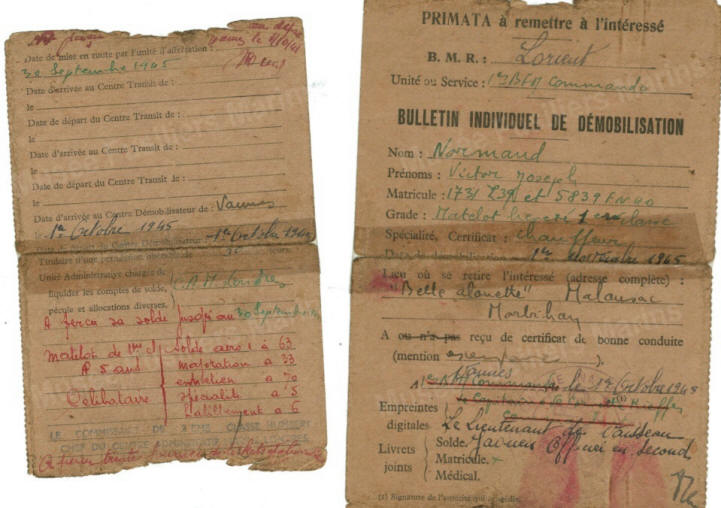 Date de mise en route par l'unité d'affectation :
30 Septembre 1945
Date d'arrivée au Centre Transit de :
le
Date de départ du Centre Transit de :
le
Date d'arrivée au Centre Transit de :
le
Date de départ du Centre Transit de :
le
Date d'arrivée au Centre Démobilisateur de : Vannes
le 1er Octobre 1945
1er Octobre 1945
Titulaire d'une permission
Unité Administrative chargée de
liquider les comptes de solde,
pécule et allocations diverses.
C.A.M. Londres
A perçu sa solde jusqu'au 30 Septembre
Matelot de 1ère cl
A 5 ans
Célibataire
Solde à 63
majoration à 33
entretien à 70
spécialité à 5
habillement à 6
LE COMMISSAIRE DE 3ÈME CLASSE HUMBERT
CHEF DU CENTRE ADMINISTRATIF
PRIMATA à remettre à l'intéressé
B. M. R. : Lorient
Unité ou Service : 1er BFM Commando
BULLETIN INDIVIDUEL DE DÉMOBILISATION
Nom : Normand
Prénoms : Victor Joseph
Matricule : et 5839 FN40
Grade : Matelot 1ere classe
Spécialité, Certificat : chauffeur
Date de démobilisation : 1er 1945
Lieu où se retire l'intéressé (adresse complète) :
"Belle alouette" Malansac
Morbihan
A ou n'a pas reçu de certificat de bonne conduite
(mention ).
Vannes
A 1er BFM Commando le 1er Octobre 1945
Kieffer
Empreintes
digitales
Le Lieutenant de Vaisseau
Officier en Second
Livrets
joints
Solde.
Matricule.
Médical.
(1) Signature de l'autorité qui